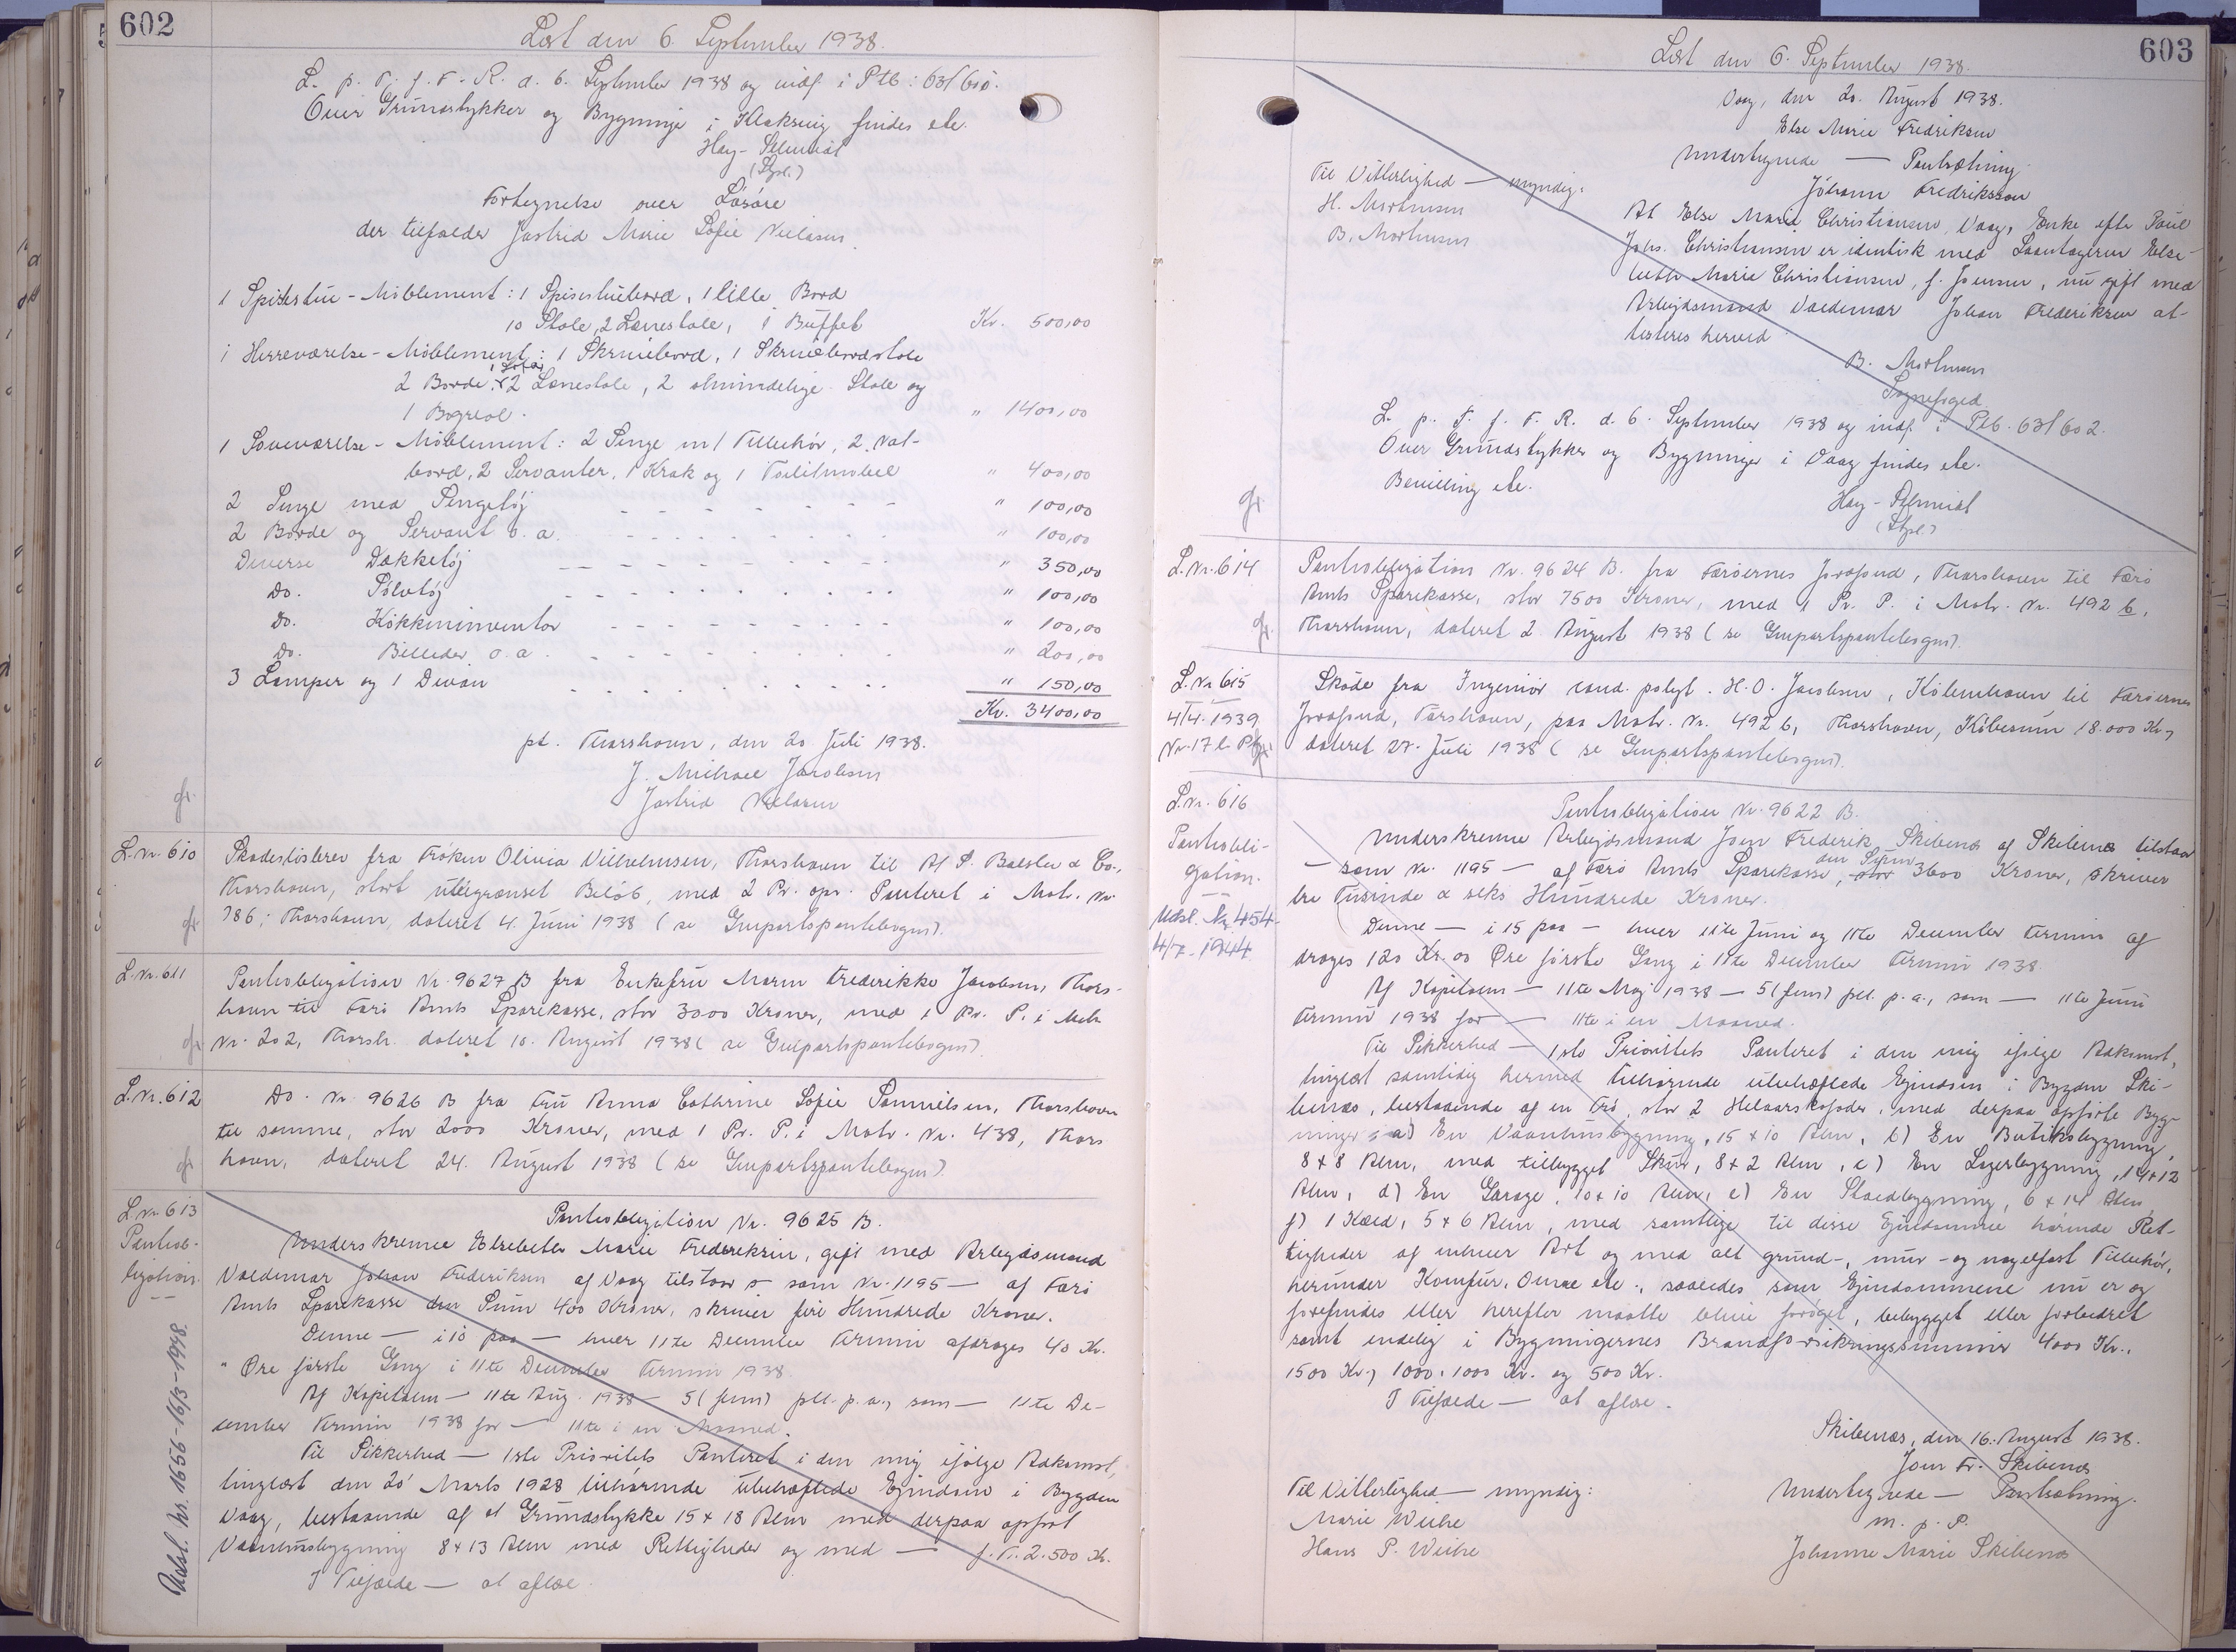 602
Læst den 6. September 1938.
L. p. T. f. F. R. d. 6. September 1938 og indf. i Ptb: 63/600.
Over Grundstykker og Bygninger i Klaksvig findes ete.
Hay-Schmidt
(Stpl.)
Fortegnelse over Løsøre
der tilfalder Jastrid Marie Sofie Nielsen.
1 Spisestue-Møblement: 1 Spisestuebord, 1 lille Bord
10 Stole, 2 Lænestole, 1 Buffet Kr. 500,00
1 Herreværelse-Møblement: 1 Skrivebord, 1 Skrivebordstole
1 Sofa,
2 Borde, 2 Lænestole, 2 almindelige Stole og
1 Bogreol. " 1400,00
1 Soveværelse-Møblement: 2 Senge m/ Tilbehør, 2 Nat-
bord, 2 Servanter, 1 Krak og 1 Toiletmøbel " 400,00
2 Senge med Sengetøj " 100,00
2 Borde og Servant o.a. " 100,00
Diverse Dækketøj " 350,00
Do. Sølvtøj " 100,00
Do. Køkkeninventar " 100,00
Do. Billeder o.a. " 200,00
3 Lamper og 1 Divan " 150,00
Kr. 3400,00
pt. Thorshavn, den 20 Juli 1938.
J. Michael Jacobsen
Jastrid Nielsen
L. Nr. 610
Skadesløsbrev fra Frøken Olivia Vilhelmsen, Thorshavn til A/S. Balslev & Co.,
Thorshavn, stort ubegrænset Beløb, med 2 Pr. opr. Panteret i Matr. Nr.
786, Thorshavn, dateret 4. Juni 1938 (se Genpartspantebogen).
L. Nr. 611
Pantobligation Nr. 9627 B fra Enkefru Maren Frederikke Jacobsen, Thors-
havn til Færø Amts Sparekasse, stor 3000 Kroner, med 1 Pr. P. i Matr.
Nr. 202, Thorsh. dateret 10. August 1938 (se Genpartspantebogen).
L. Nr. 612
Do. Nr. 9626 B fra Fru Anna Cathrine Sofie Samuelsen, Thorshavn
til samme, stor 2000 Kroner, med 1 Pr. P. i Matr. Nr. 438, Thors
havn, dateret 24. August 1938 (se Genpartspantebogen).
L. Nr. 613
Pantob-
ligation.
Udsl. Nr. 1656-16/3-1948.
Pantobligation Nr. 9625 B.
Underskrevne Elsebeth Marie Frederiksen, gift med Arbejdsmand
Valdemar Johan Frederiksen af Vaag tilstaar som Nr. 1195 — af Færø
Amts Sparekasse den Sum 400 Kroner, skriver fire Hundrede Kroner.
Denne — i 10 paa — hver 11te December Termin afdrages 40 Kr.
" Øre første Gang i 11te December Termin 1938.
Af Kapitalen — 11te Aug. 1938 — 5 (fem) pct. p.a., som — 11te De-
cember Termin 1938 for — 11te i en Maaned.
Til Sikkerhed — 1ste Prioritets Panteret i den mig ifølge Adkomst,
tinglæst den 20 Marts 1928 tilhørende ubehæftede Ejendom i Bygden
Vaag, bestaaende af et Grundstykke 15 x 18 Alen med derpaa opført
Vaanhusbygning 8 x 13 Alen med Rettigheder og med — f. V. 2.500 Kr.
I Tilfælde — at aflæse.
603
Læst den 6. September 1938.
Vaag, den 20. August 1938.
Else Marie Fredriksen
Undertegnede — Pantsætning
Jóhann Fredriksson
Til Vitterlighed — myndig:
H. Mortensen
B. Mortensen
At Else Marie Christiansen, Vaag, Enke efter Poul
Johs. Christiansen er identisk med Laantageren Else-
beth Marie Christiansen, f. Joensen, nu gift med
Arbejdsmand Valdemar Johan Frederiksen at-
testeres herved
B. Mortensen
Sognefoged
L. p. T. f. F. R. d. 6. September 1938 og indf. i Ptb. 63/602.
Over Grundstykker og Bygninger i Vaag findes ete.
Bevilling ete.
Hay-Schmidt
(Stpl.)
L. Nr. 614
Pantobligation Nr. 9624 B. fra Færøernes Jordfond, Thorshavn til Færø
Amts Sparekasse, stor 7500 Kroner, med 1 Pr. P. i Matr. Nr. 492 b,
Thorshavn, dateret 2 August 1938 (se Genpartspantebogen).
L. Nr. 615
4/4. 1939
Nr. 17
Skøde fra Ingeniør cand. polyt. H. O. Jacobsen, København til Færøernes
Jordfond, Torshavn, paa Matr. Nr. 492 b, Thorshavn, Købesum 18.000 Kr.,
dateret 27. Juli 1938 (se Genpartspantebogen).
L. Nr. 616
Pantobli-
gation.
Udsl. Nr 454
1944
Pantobligation Nr. 9622 B.
Underskrevne Arbejdsmand Joen Frederik Skibenæs af Skibenæs tilstaar
— som Nr. 1195 — af Færø Amts Sparekasse, den Sum 3600 Kroner, skriver
tre Tusinde & seks Hundrede Kroner.
Denne — i 15 paa — hver 11te Juni og 11te December Termin af
drages 120 Kr. 00 Øre første Gang i 11te December Termin 1938.
Af Kapitalen — 11te Maj 1938 — 5 (fem) pct. p.a., som — 11te Juni
Termin 1938 for — 11te i en Maaned.
Til Sikkerhed — 1ste Prioritets Panteret i den mig ifølge Adkomst,
tinglæst samtidig hermed tilhørende ubehæftede Ejendom i Bygden Ski-
benæs, bestaaende af en Trø, stor 2 Helaarskofoder, med derpaa opførte Byg-
ninger: a) En Vaanhusbygning, 15 x 10 Alen, b) En Butiksbygning,
8 x 8 Alen, med tilbygget Skur, 8 x 2 Alen, c) En Lagerbygning, 14 x 12
Alen, d) En Garage, 10 x 10 Alen, e) En Staldbygning, 6 x 14 Alen,
f) 1 Kæld, 5 x 6 Alen, med samtlige til disse Ejendomme hørende Ret-
tigheder af enhver Art og med alt grund-, mur- og nagelfast Tilbehør,
herunder Komfur, Ovne ete., saaledes som Ejendommene nu er og
forefindes eller herefter maatte blive forøget, bebygget eller forbedret
samt endelig i Bygningernes Brandforsikringssummer 4000 Kr.,
1500 Kr., 1000, 1000 Kr. og 500 Kr.
I Tilfælde — at aflæse.
Skibenæs, den 16. August 1938.
Joen Fr. Skibenæs
Undertegnede — Pantsætning.
m. f. P.
Johanne Marie Skibenæs
Til Vitterlighed — myndig:
Marie Weihe
Hans P. Weihe